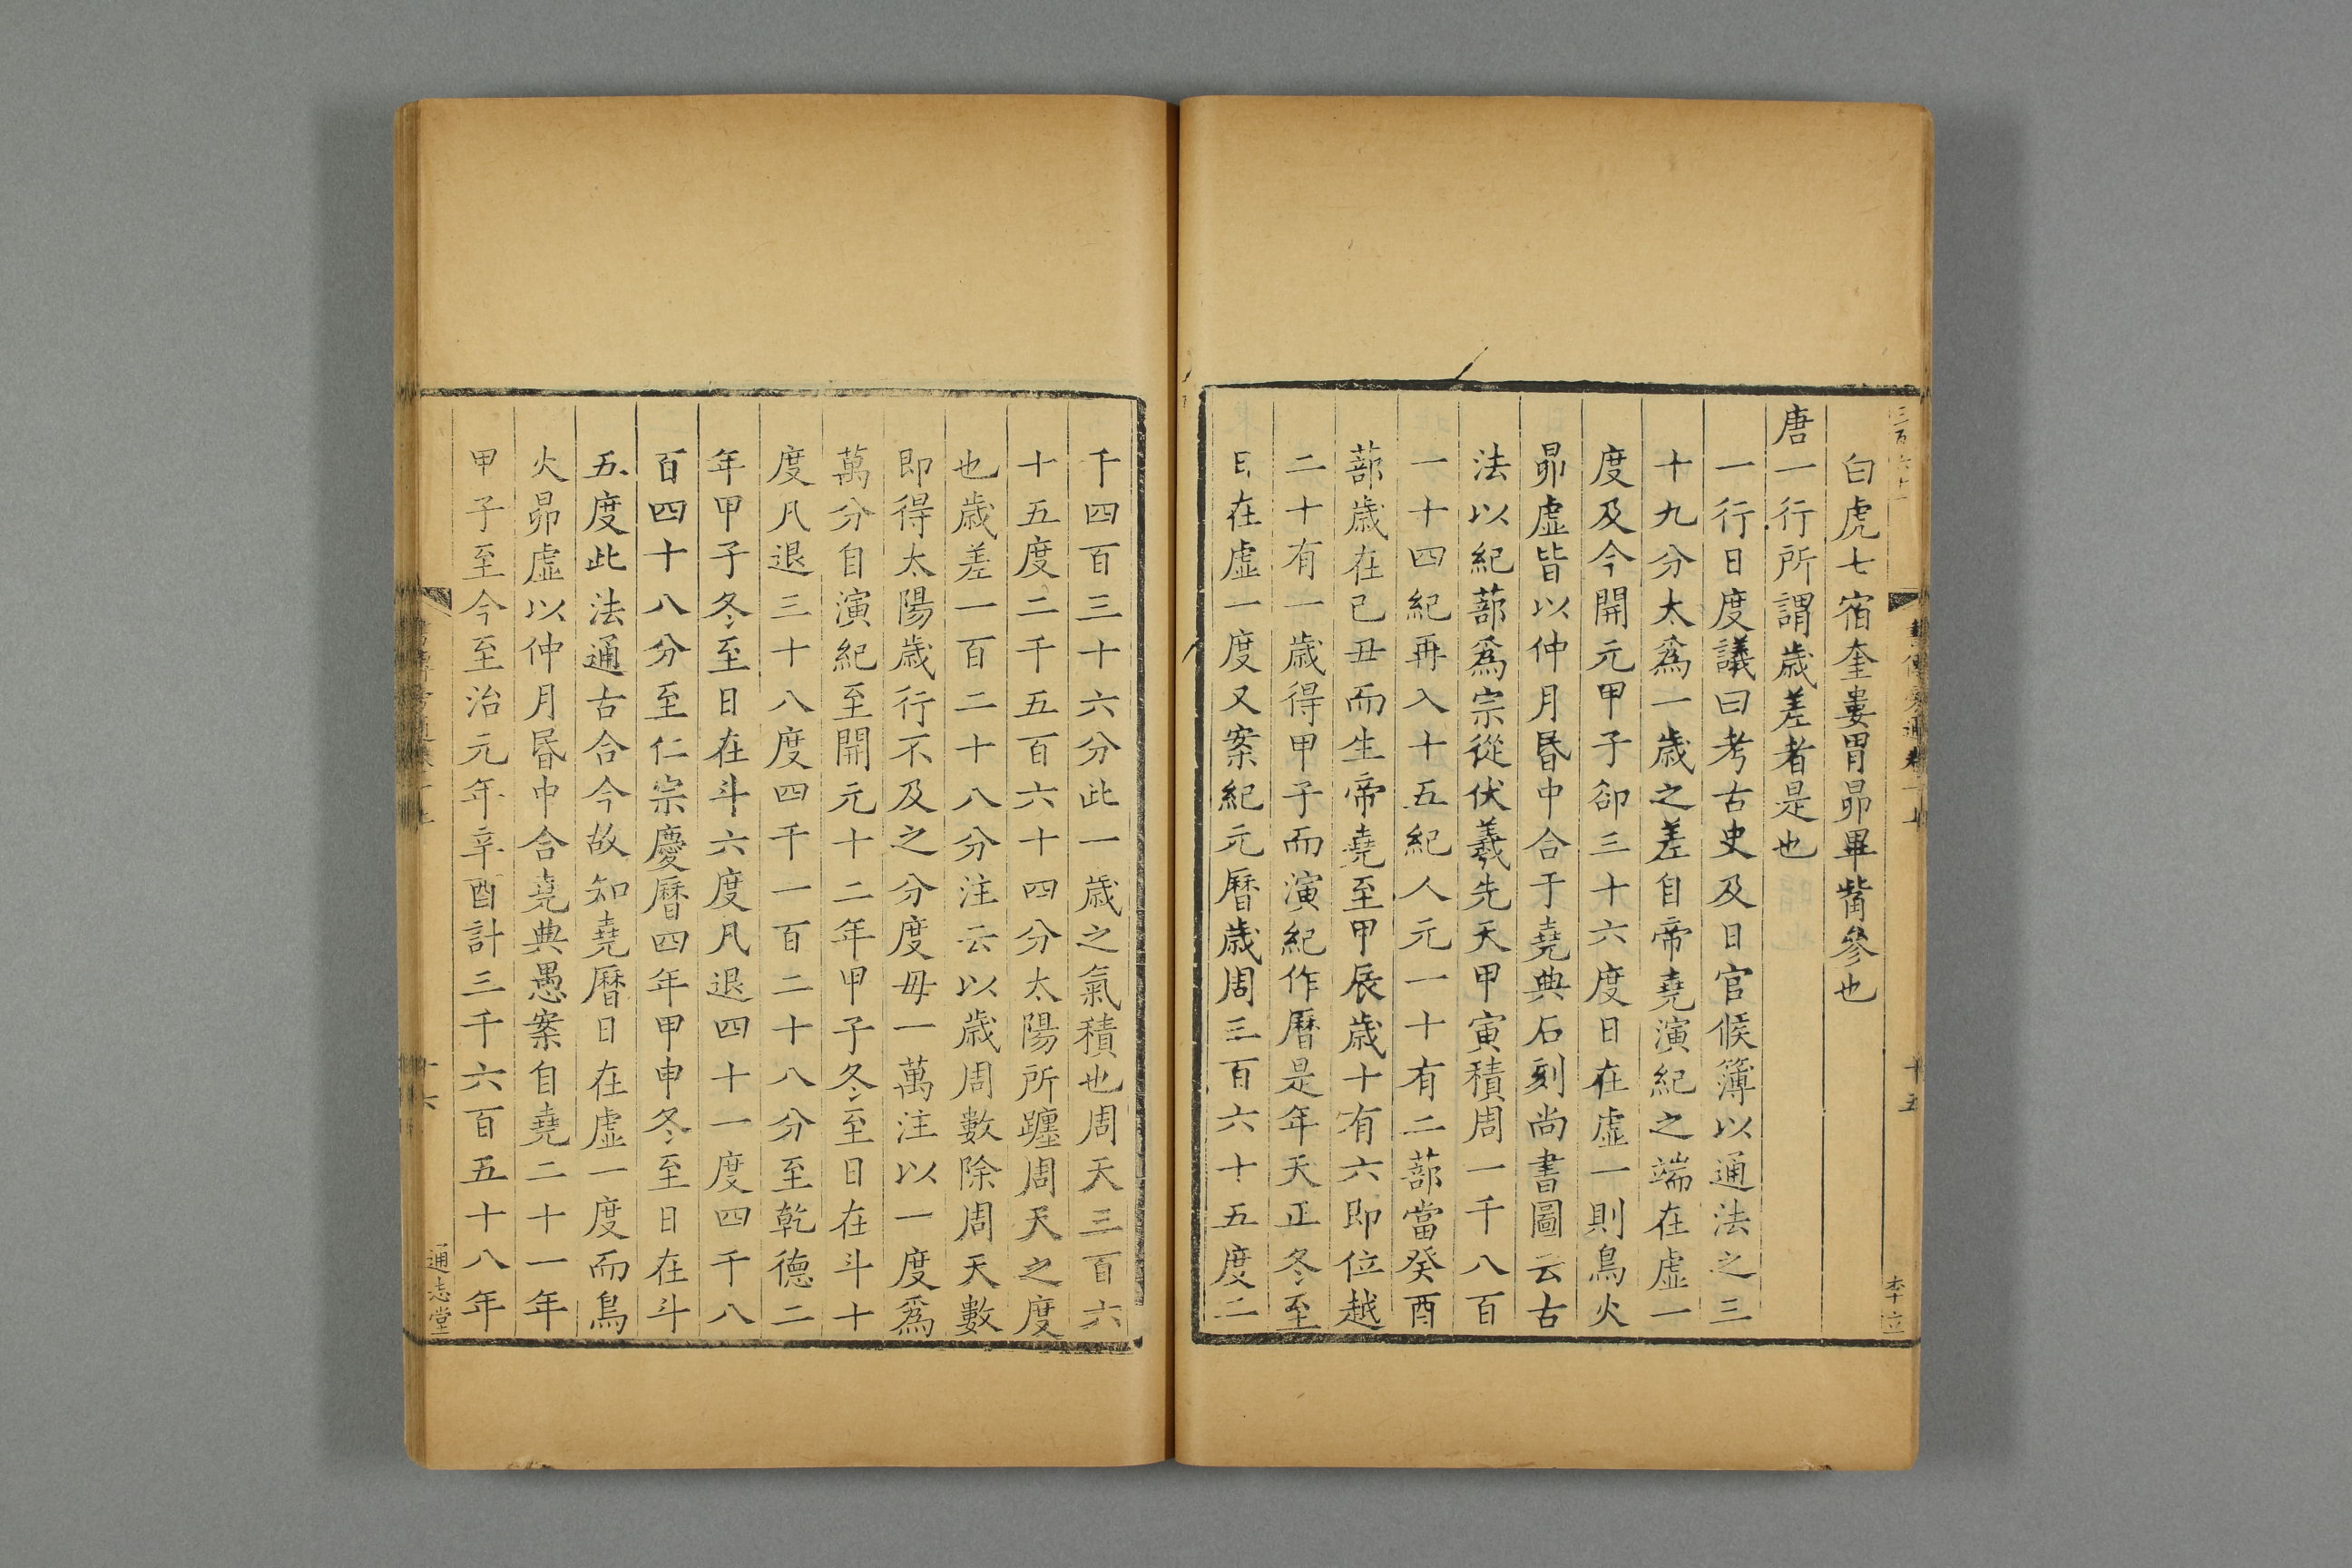 白虎七宿奎婁胃昴畢觜參也
唐一行所謂歲差者是也
一行日度議曰考古史及日官候簿以通法之三
十九分太爲一歲之差自帝堯演紀之端在虛一
度及今開元甲子卻三十六度日在虛一則鳥火
昴虛皆以仲月昏中合于堯典石刻尚書圖云古
法以紀蔀爲宗從伏羲先天甲寅積周一千八百
一十四紀再入十五紀人元一十有二蔀當癸酉
蔀歲在己丑而生帝堯至甲辰歲十有六即位越
二十有一歲得甲子而演紀作曆是年天正冬至
日在虛一度又案紀元曆歲周三百六十五度二
十五
李立
千四百三十六分此一歲之氣積也周天三百六
十五度二千五百六十四分太陽所躔周天之度
也歲差一百二十八分注云以歲周數除周天數
即得太陽歲行不及之分度毋一萬注以一度爲
萬分自演紀至開元十二年甲子冬至日在斗十
度凡退三十八度四千一百二十八分至乾德二
年甲子冬至日在斗六度凡退四十一度四千八
百四十八分至仁宗慶曆四年甲申冬至日在斗
五度此法通古合今故知堯曆日在虛一度而鳥
火昴虛以仲月昏中合堯典愚案自堯二十一年
甲子至今至治元年辛酉計三千六百五十八年
十六
通志堂